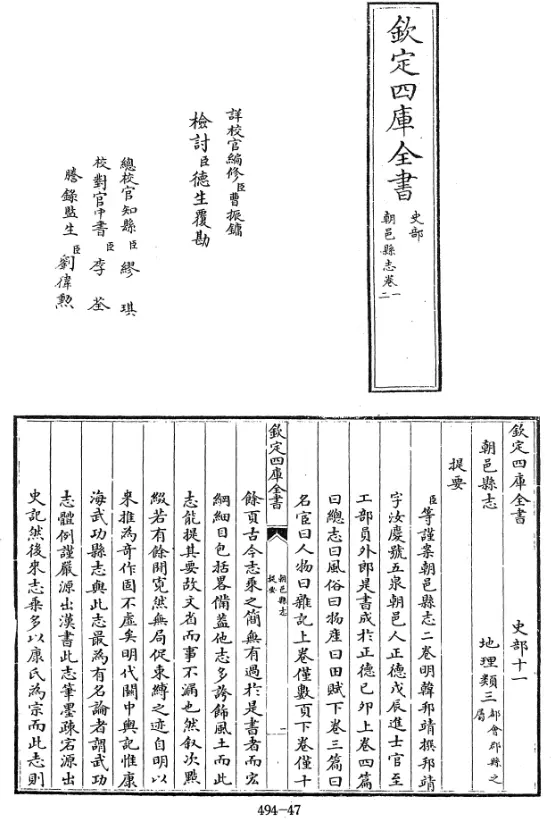 欽定四庫全書
史部
朝邑縣志卷一
二
詳校官編修臣曹振鏞
檢討臣德生覆勘
總校官知縣臣繆琪
校對官中書臣李荃
謄錄監生臣劉偉勲
欽定四庫全書 史部十一
朝邑縣志 地理類三都會郡縣之屬
提要
臣等謹案朝邑縣志二卷明韓邦靖撰邦靖
字汝慶號五泉朝邑人正德戊辰進士官至
工部員外郎是書成於正德己卯上卷四篇
曰總志曰風俗曰物産曰田賦下卷三篇曰
名宦曰人物曰雜記上卷僅數頁下卷僅十
欽定四庫全書
朝邑縣志
提要
一
餘頁古今志乗之簡無有過於是書者而宏
綱細目包括畧備蓋他志多誇飾風土而此
志能提其要故文省而事不漏也然叙次點
綴若有餘閒寛然無局促束縛之迹自明以
來推為奇作固不虛矣明代關中輿記惟康
海武功縣志與此志最為有名論者謂武功
志體例謹嚴源出漢書此志筆墨疎宕源出
史記然後來志乗多以康氏為宗而此志則
494-47